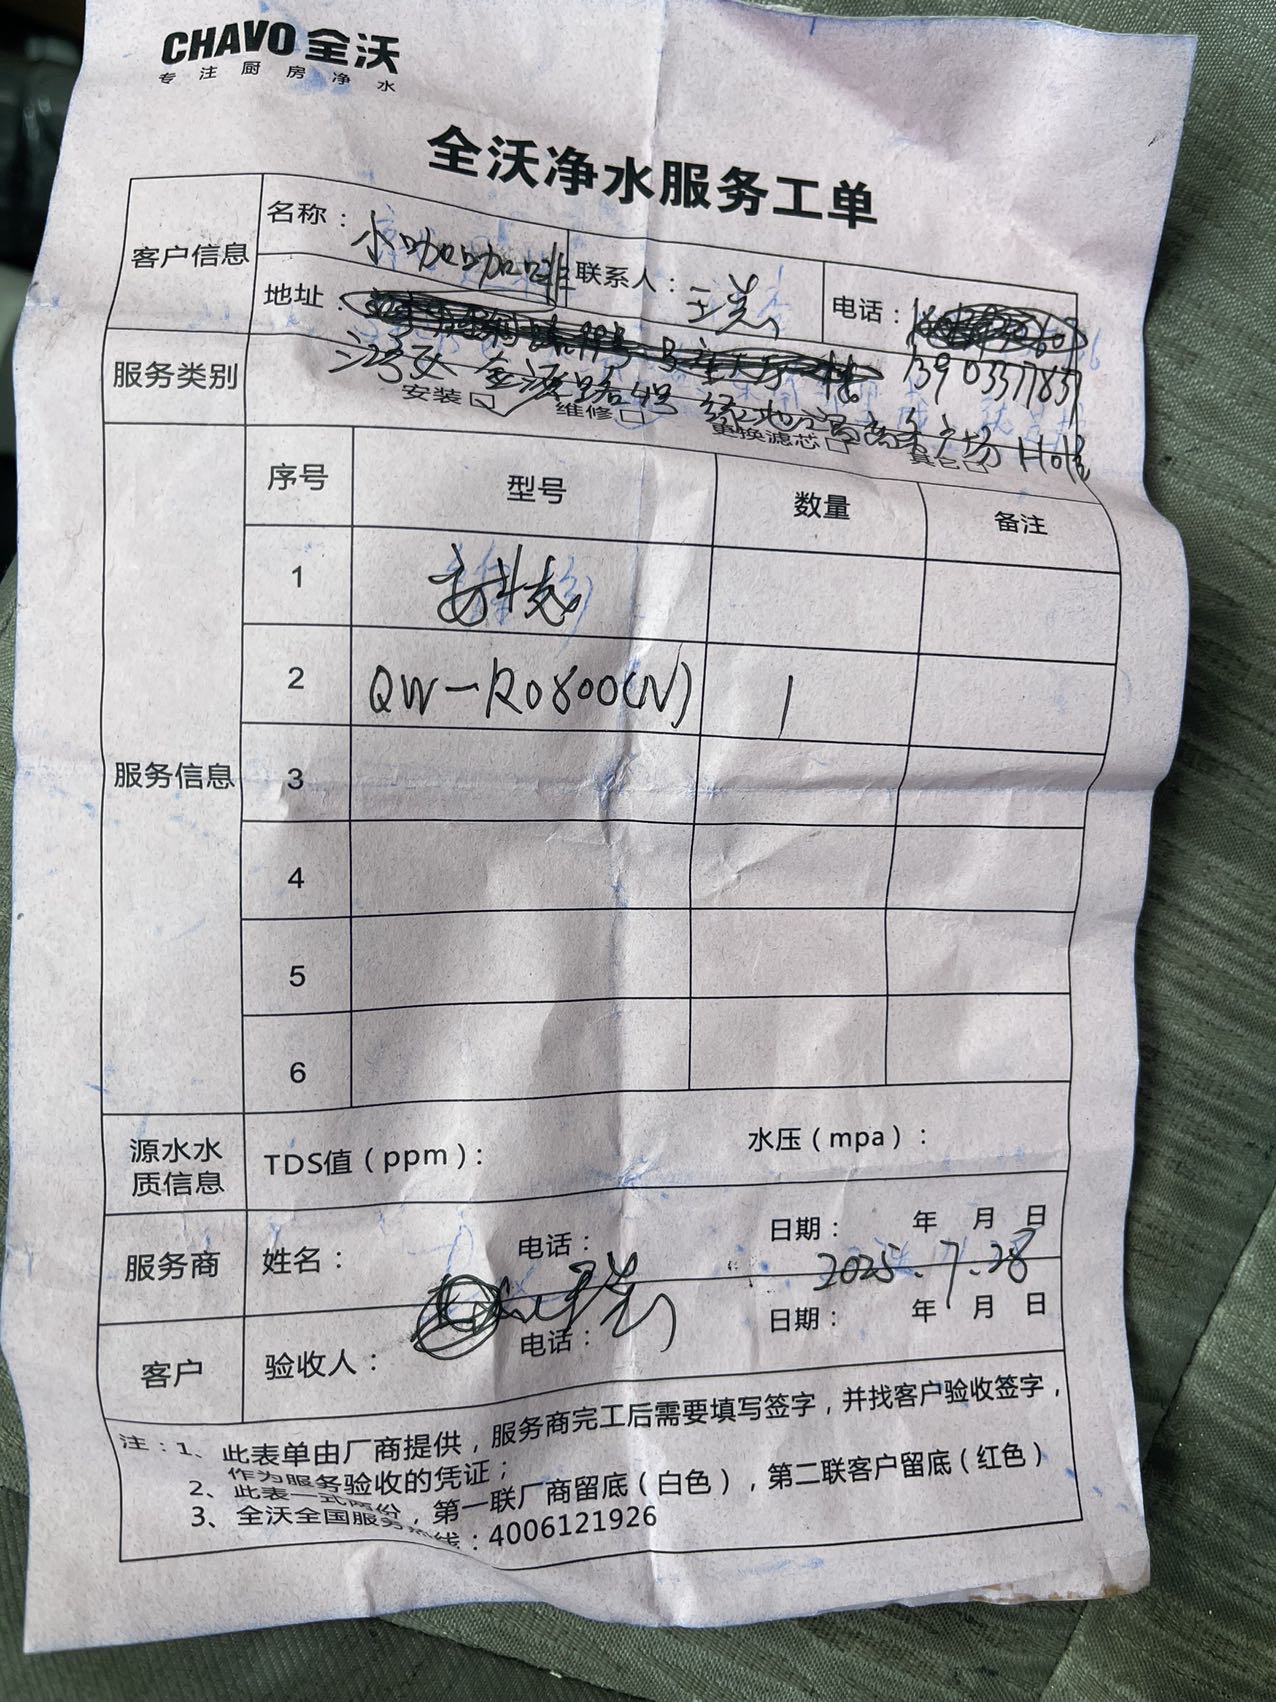 CHAVO 全沃
专注厨房净水
全沃净水服务工单
客户信息 名称：小咖咖啡 联系人： 电话：
地址：
13903371837
金源路 广场
服务类别 安装☑ 维修□ 更换滤芯□ 其它□
服务信息 序号 型号 数量 备注
1
2 QW-RO800(N) 1
3
4
5
6
源水水质信息 TDS值（ppm）： 水压（mpa）：
服务商 姓名： 电话： 日期： 年 月 日
2025.7.28
客户 验收人： 电话： 日期： 年 月 日
注：1、此表单由厂商提供，服务商完工后需要填写签字，并找客户验收签字，
作为服务验收的凭证；
2、此表一式两份，第一联厂商留底（白色），第二联客户留底（红色）
3、全沃全国服务热线：4006121926